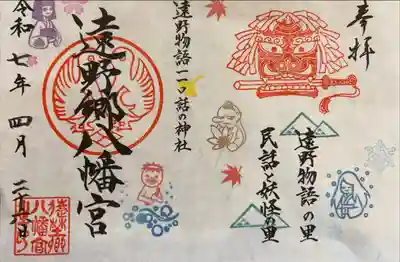 奉拝
遠野物語の里
民話と妖怪の里
遠野物語一一〇話の神社
遠野郷八幡宮
令和七年四月二十六日